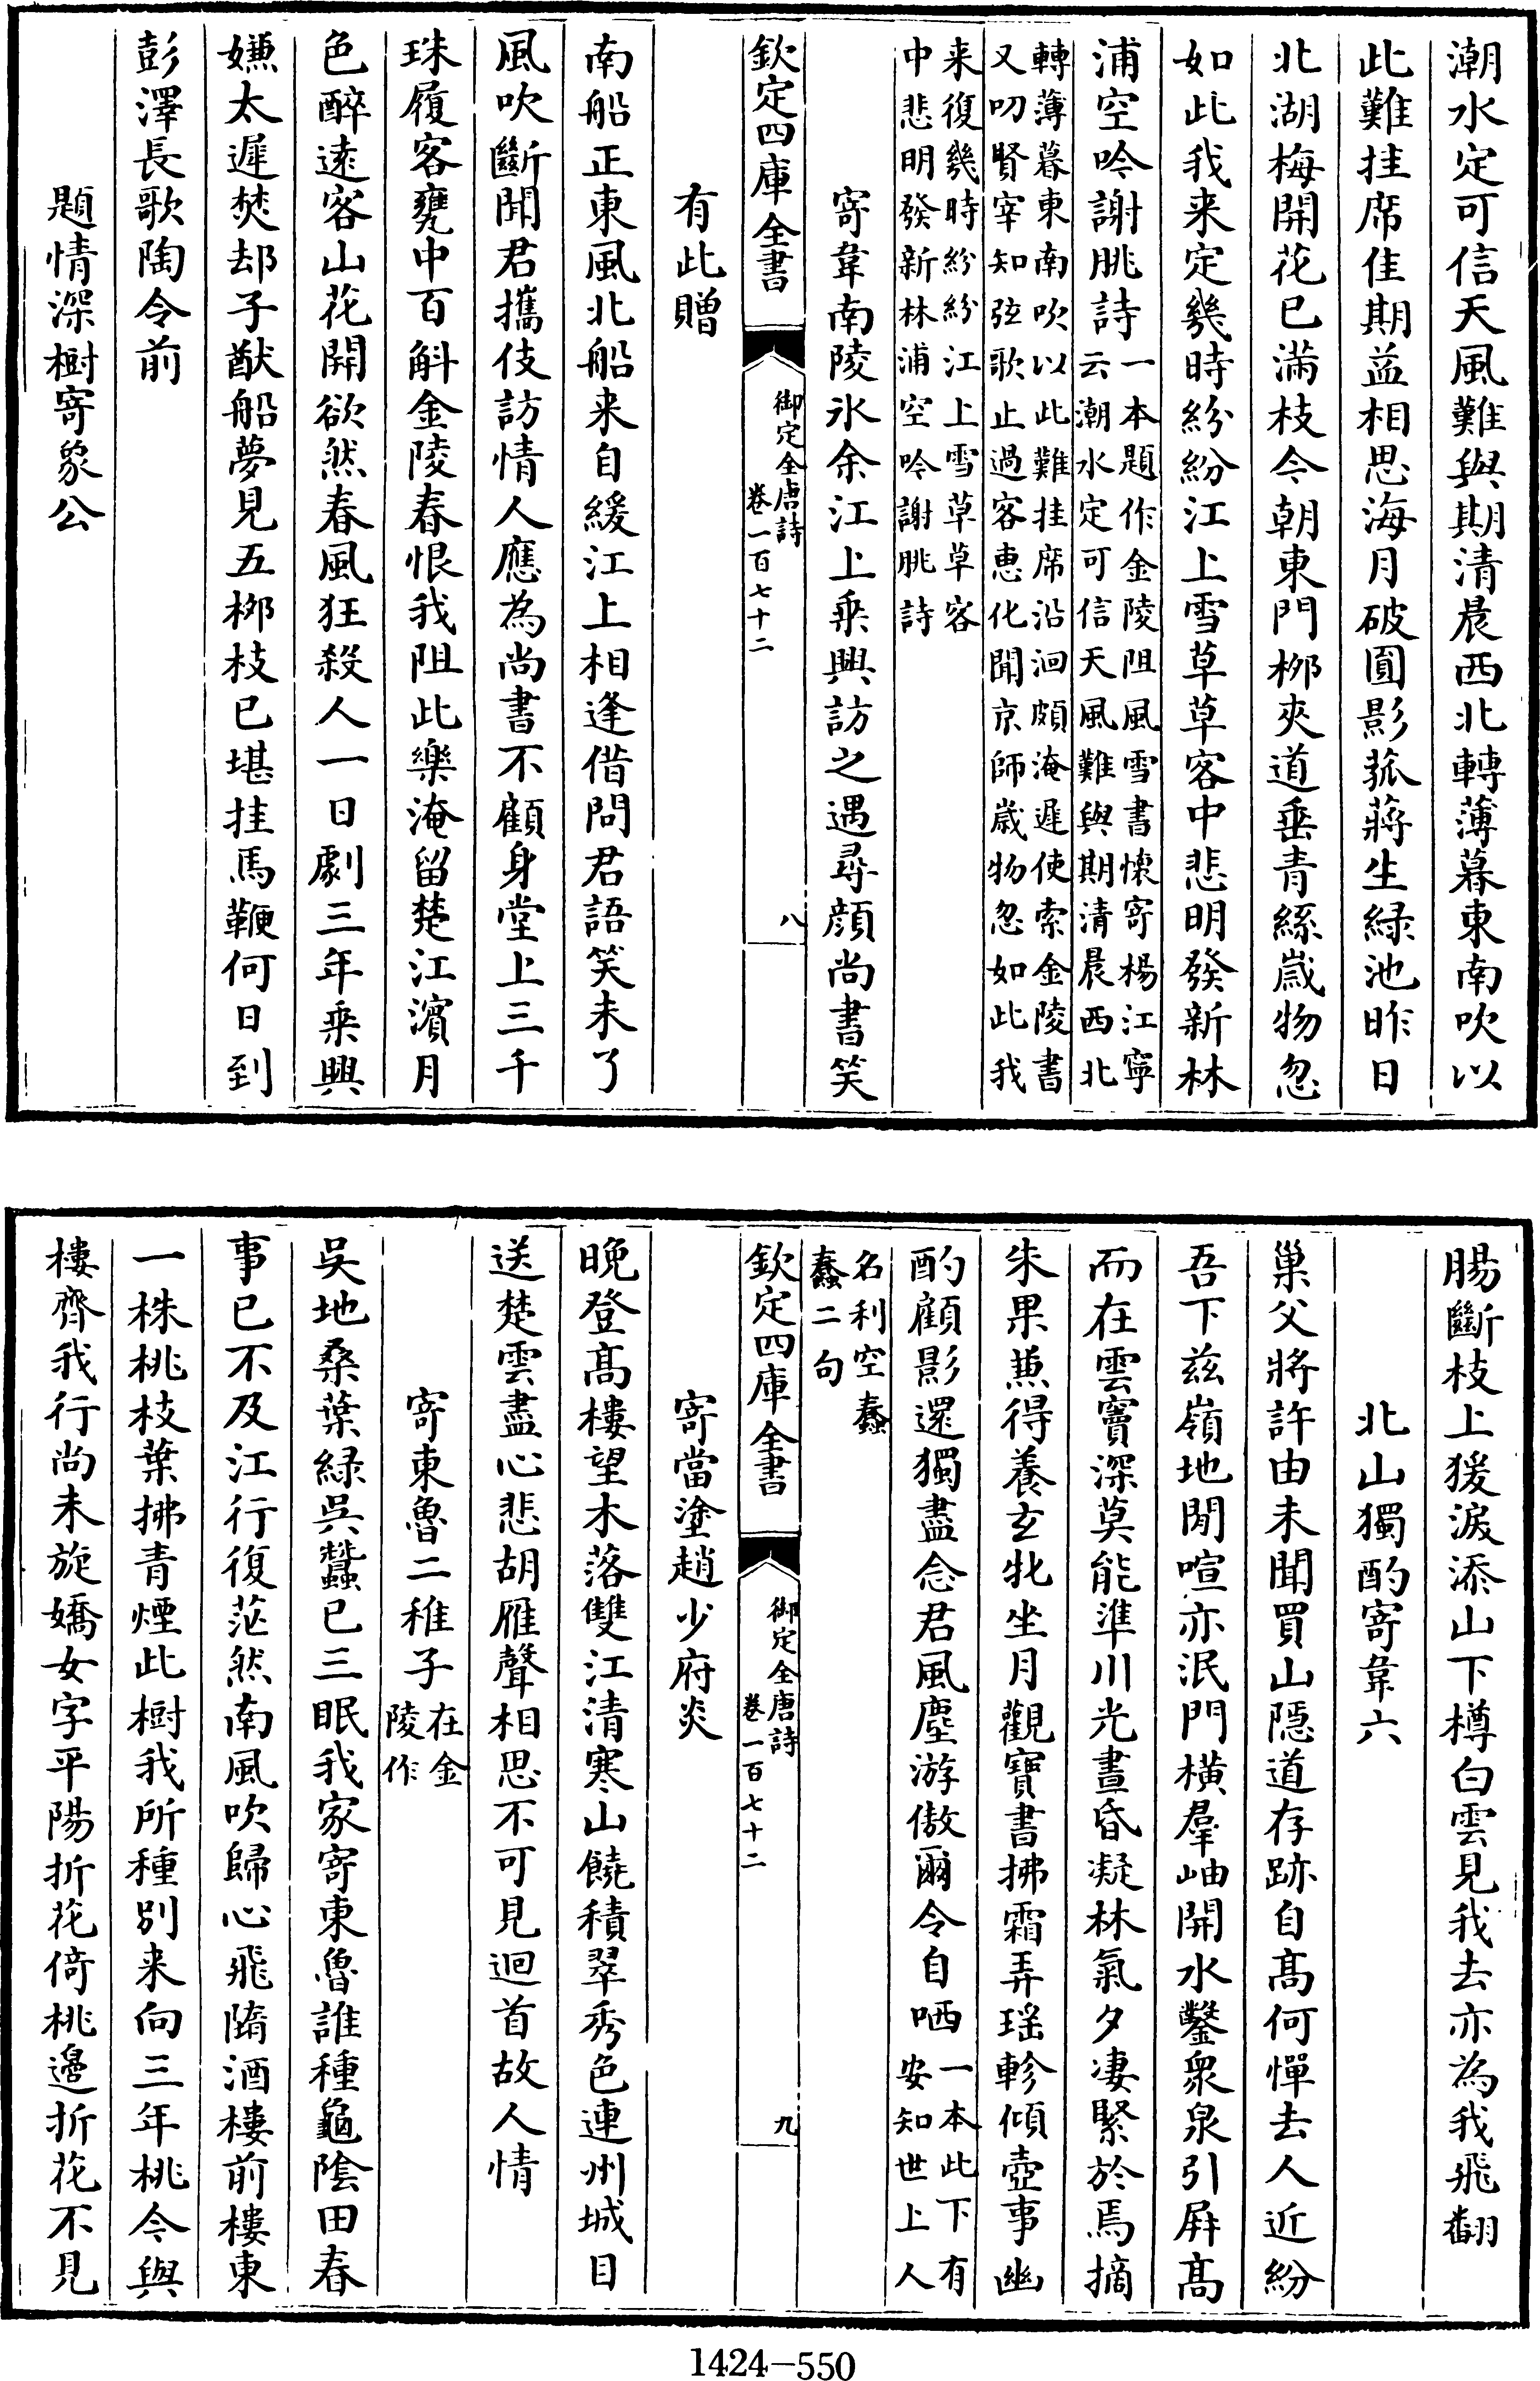 潮水定可信天風難與期清晨西北轉薄暮東南吹以
此難挂席佳期益相思海月破圓影菰蔣生緑池昨日
北湖梅開花已滿枝今朝東門栁夾道垂青絲嵗物忽
如此我来定幾時紛紛江上雪草草客中悲明發新林
浦空吟謝朓詩一本題作金陵阻風雪書懐寄楊江寧
云潮水定可信天風難與期清晨西北
轉薄暮東南吹以此難挂席沿洄頗淹遲使索金陵書
又叨賢宰知弦歌止過客惠化聞京師嵗物忽如此我
来復幾時紛紛江上雪草草客
中悲明發新林浦空吟謝朓詩
寄韋南陵氷余江上乗興訪之遇尋顔尚書笑
欽定四庫全書
御定全唐詩
卷一百七十二
八
有此贈
南船正東風北船来自緩江上相逢借問君語笑未了
風吹斷聞君攜伎訪情人應為尚書不顧身堂上三千
珠履客甕中百斛金陵春恨我阻此樂淹留楚江濵月
色醉逺客山花開欲然春風狂殺人一日劇三年乗興
嫌太遲焚却子猷船夢見五栁枝已堪挂馬鞭何日到
彭澤長歌陶令前
題情深樹寄象公
腸斷枝上猨淚添山下樽白雲見我去亦為我飛翻
北山獨酌寄韋六
巢父將許由未聞買山隠道存跡自髙何憚去人近紛
吾下兹嶺地閒喧亦泯門横羣岫開水鑿衆泉引屛髙
而在雲竇深莫能準川光晝昏凝林氣夕凄緊於焉摘
朱果兼得養玄牝坐月觀寳書拂霜弄瑶軫傾壺事幽
酌顧影還獨盡念君風塵游傲爾令自哂一本此下有
安知世上人
名利空蠢
蠢二句
欽定四庫全書
御定全唐詩
卷一百七十二
九
寄當塗趙少府炎
晚登髙樓望木落雙江清寒山饒積翠秀色連州城目
送楚雲盡心悲胡雁聲相思不可見迴首故人情
寄東魯二稚子在金
陵作
吳地桑葉緑吳蠶已三眠我家寄東魯誰種龜隂田春
事已不及江行復茫然南風吹歸心飛墮酒樓前樓東
一株桃枝葉拂青煙此樹我所種別来向三年桃今與
樓齊我行尚未旋嬌女字平陽折花倚桃邉折花不見
1424—550